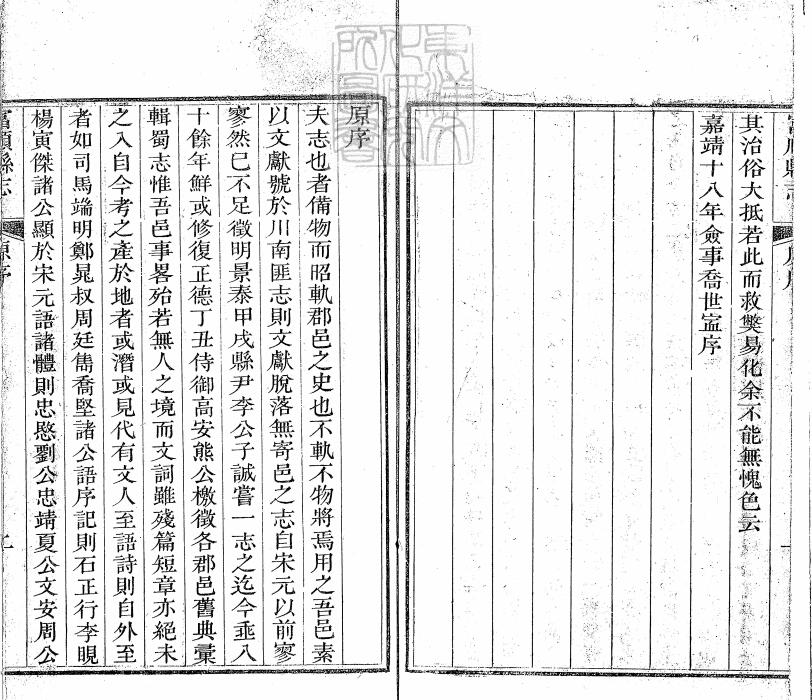 其治俗大抵若此而救獘易化余不能無愧色云
嘉靖十八年僉事喬世寍序
原序
夫志也者備物而昭軌郡邑之史也不軌不物將焉用之吾邑素
以文獻號於川南匪志則文獻脫落無寄邑之志自宋元以前寥
寥然已不足徵明景泰甲戌縣尹李公子誠嘗一志之迄今垂八
十餘年鮮或修復正德丁丑侍御高安熊公檄徵各郡邑舊典彙
輯蜀志惟吾邑事畧殆若無人之境而文詞雖殘篇短章亦絕未
之入自今考之產於地者或潛或見代有文人至語詩則自外至
者如司馬端明鄭晁叔周廷雋喬堅諸公語序記則石正行李晛
楊寅傑諸公顯於宋元語諸體則忠愍劉公忠靖夏公文安周公
富順縣志
原序